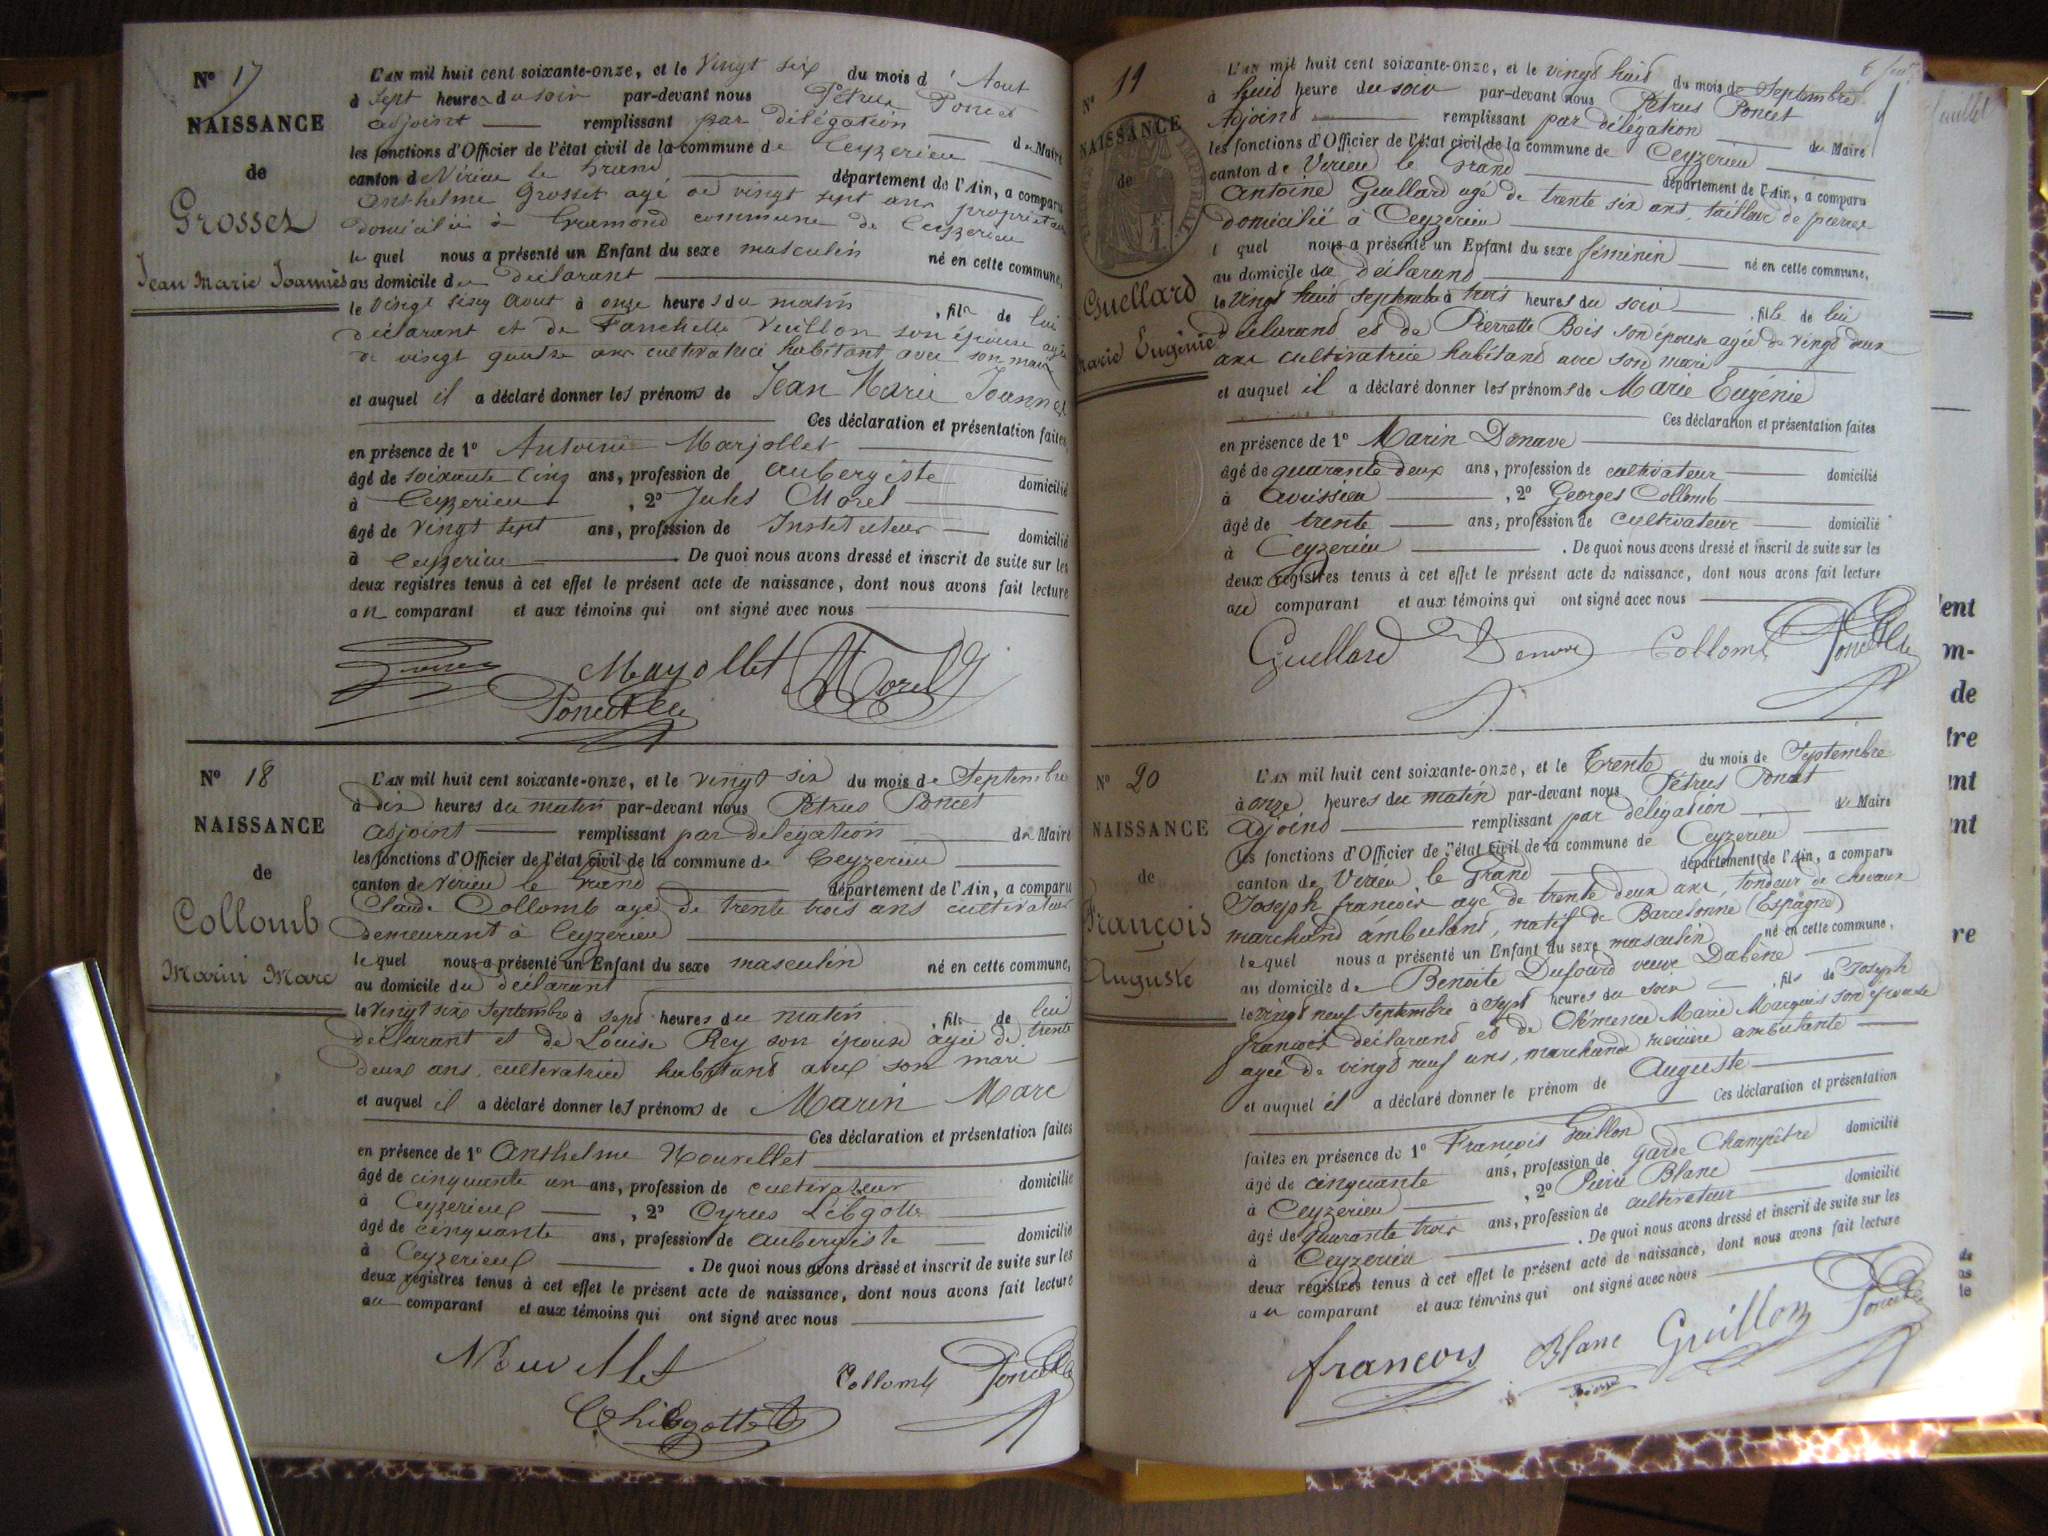 N° 17
NAISSANCE
de
Grosset
Jean Marie Joannès
L'AN mil huit cent soixante-onze, et le Vingt six du mois d'Aout
à sept heures du soir par-devant nous Pétrus Poncet
adjoint remplissant par délégation du Maire
les fonctions d'Officier de l'état civil de la commune de Ceyzerieu
canton de Virieu le Grand département de l'Ain, a comparu
Anthelme Grosset agé de vingt sept ans propriétaire
domicilié à Gramond commune de Ceyzerieu
le quel nous a présenté un Enfant du sexe masculin né en cette commune,
au domicile du déclarant
le vingt cinq Aout à onze heures du matin, fils de lui
déclarant et de Fanchette Vuillon son épouse agée
de vingt quatre ans cultivatrice habitant avec son mari
et auquel il a déclaré donner les prénoms de Jean Marie Joannès
Ces déclaration et présentation faites
en présence de 1° Antoine Marjollet
âgé de soixante cinq ans, profession de aubergiste domicilié
à Ceyzerieu, 2° Jules Morel
âgé de vingt sept ans, profession de Instituteur domicilié
à Ceyzerieu De quoi nous avons dressé et inscrit de suite sur les
deux registres tenus à cet effet le présent acte de naissance, dont nous avons fait lecture
au comparant et aux témoins qui ont signé avec nous
Mayollet Morel
Poncet
N° 18
NAISSANCE
de
Collomb
Marin Marc
L'AN mil huit cent soixante-onze, et le vingt six du mois de Septembre
à dix heures du matin par-devant nous Pétrus Poncet
adjoint remplissant par délégation du Maire
les fonctions d'Officier de l'état civil de la commune de Ceyzerieu
canton de Virieu le Grand département de l'Ain, a comparu
Claude Collomb agé de trente trois ans cultivateur
demeurant à Ceyzerieu
le quel nous a présenté un Enfant du sexe masculin né en cette commune,
au domicile du déclarant
le vingt six Septembre à sept heures du matin, fils de lui
déclarant et de Louise Rey son épouse agée de trente
deux ans, cultivatrice habitant avec son mari
et auquel il a déclaré donner les prénoms de Marin Marc
Ces déclaration et présentation faites
en présence de 1° Anthelme Nouvellet
âgé de cinquante un ans, profession de cultivateur domicilié
à Ceyzerieu, 2° Cyrus
âgé de cinquante ans, profession de aubergiste domicilié
à Ceyzerieu. De quoi nous avons dressé et inscrit de suite sur les
deux registres tenus à cet effet le présent acte de naissance, dont nous avons fait lecture
au comparant et aux témoins qui ont signé avec nous
Collomb Poncet
N° 19
NAISSANCE
de
Guellard
Marie Eugénie
L'AN mil huit cent soixante-onze, et le vingt huit du mois de Septembre
à huit heure du soir par-devant nous Pétrus Poncet
Adjoint remplissant par délégation du Maire
les fonctions d'Officier de l'état civil de la commune de Ceyzerieu
canton de Virieu le Grand département de l'Ain, a comparu
Antoine Guellard agé de trente six ans, tailleur de pierres
domicilié à Ceyzerieu
lequel nous a présenté un Enfant du sexe féminin né en cette commune,
au domicile du déclarant
le Vingt huit septembre à trois heures du soir, fille de lui
déclarant et de Pierrette Bois son épouse agée de vingt deux
ans cultivatrice habitant avec son mari
et auquel il a déclaré donner les prénoms de Marie Eugénie
Ces déclaration et présentation faites
en présence de 1° Marin Donave
âgé de quarante deux ans, profession de cultivateur domicilié
à Avrissieu, 2° Georges Collomb
âgé de trente ans, profession de cultivateur domicilié
à Ceyzerieu. De quoi nous avons dressé et inscrit de suite sur les
deux registres tenus à cet effet le présent acte de naissance, dont nous avons fait lecture
au comparant et aux témoins qui ont signé avec nous
Guellard Collomb Poncet
N° 20
NAISSANCE
de
François
Auguste
L'AN mil huit cent soixante-onze, et le Trente du mois de Septembre
à onze heures du matin par-devant nous Pétrus Poncet
Adjoint remplissant par délégation du Maire
les fonctions d'Officier de l'état civil de la commune de Ceyzerieu
canton de Virieu le Grand département de l'Ain, a comparu
Joseph françois agé de trente deux ans, tondeur de chevaux
marchand ambulant, natif de Barcelonne (Espagne)
le quel nous a présenté un Enfant du sexe masculin né en cette commune,
au domicile de Benoite Dufourd veuve Dabène
le vingt neuf Septembre à sept heures du soir, fils de Joseph
françois déclarant et de Clémence Marie Marquis son épouse
agée de vingt neuf ans, marchande mercière ambulante
et auquel il a déclaré donner le prénom de Auguste
Ces déclaration et présentation
faites en présence de 1° François Guillon
âgé de cinquante ans, profession de garde Champêtre domicilié
à Ceyzerieu, 2° Pierre Blanc
âgé de quarante trois ans, profession de cultivateur domicilié
à Ceyzerieu. De quoi nous avons dressé et inscrit de suite sur les
deux registres tenus à cet effet le présent acte de naissance, dont nous avons fait lecture
au comparant et aux témoins qui ont signé avec nous
françois Blanc Guillon Poncet